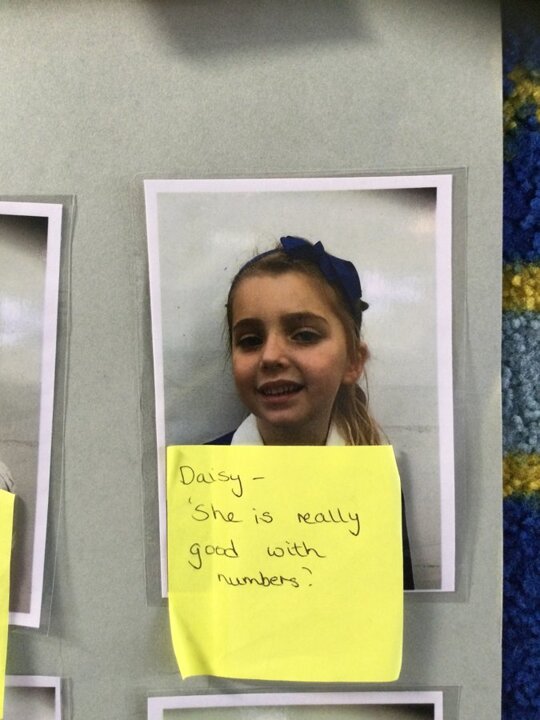 Daisy -
'She is really
good with
numbers?